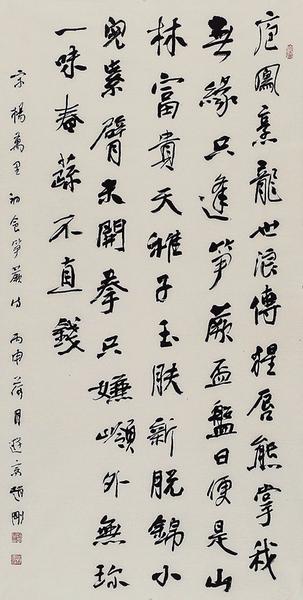 庖鳳烹龍世浪傳猩唇熊掌我
無緣只逢筍蕨盃盤日便是山
林富貴天稚子玉肤新脫錦小
兒紫臂未開拳只嫌嶺外無珍
一味春蔬不直錢
宋楊萬里初食筍蕨詩 丙申荷月 京趙剛